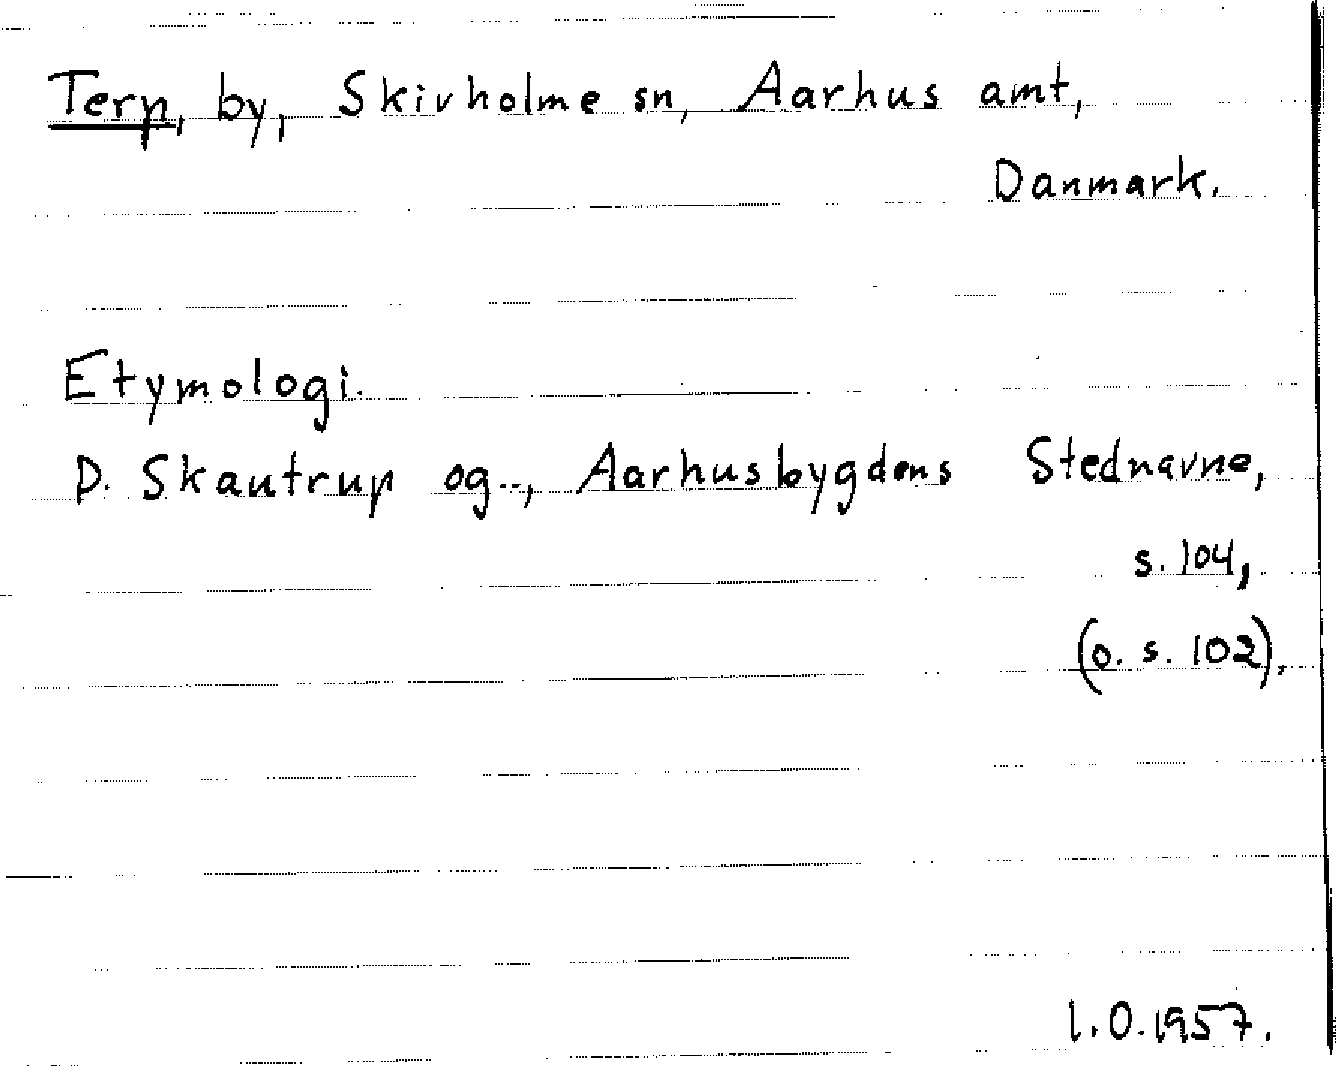 Terp, by, Skivholme sn, Aarhus amt,
Danmark.
Etymologi.
P. Skautrup og.., Aarhusbygdens Stednavne,
s. 104,
(o. s. 102).
1.O.1957.